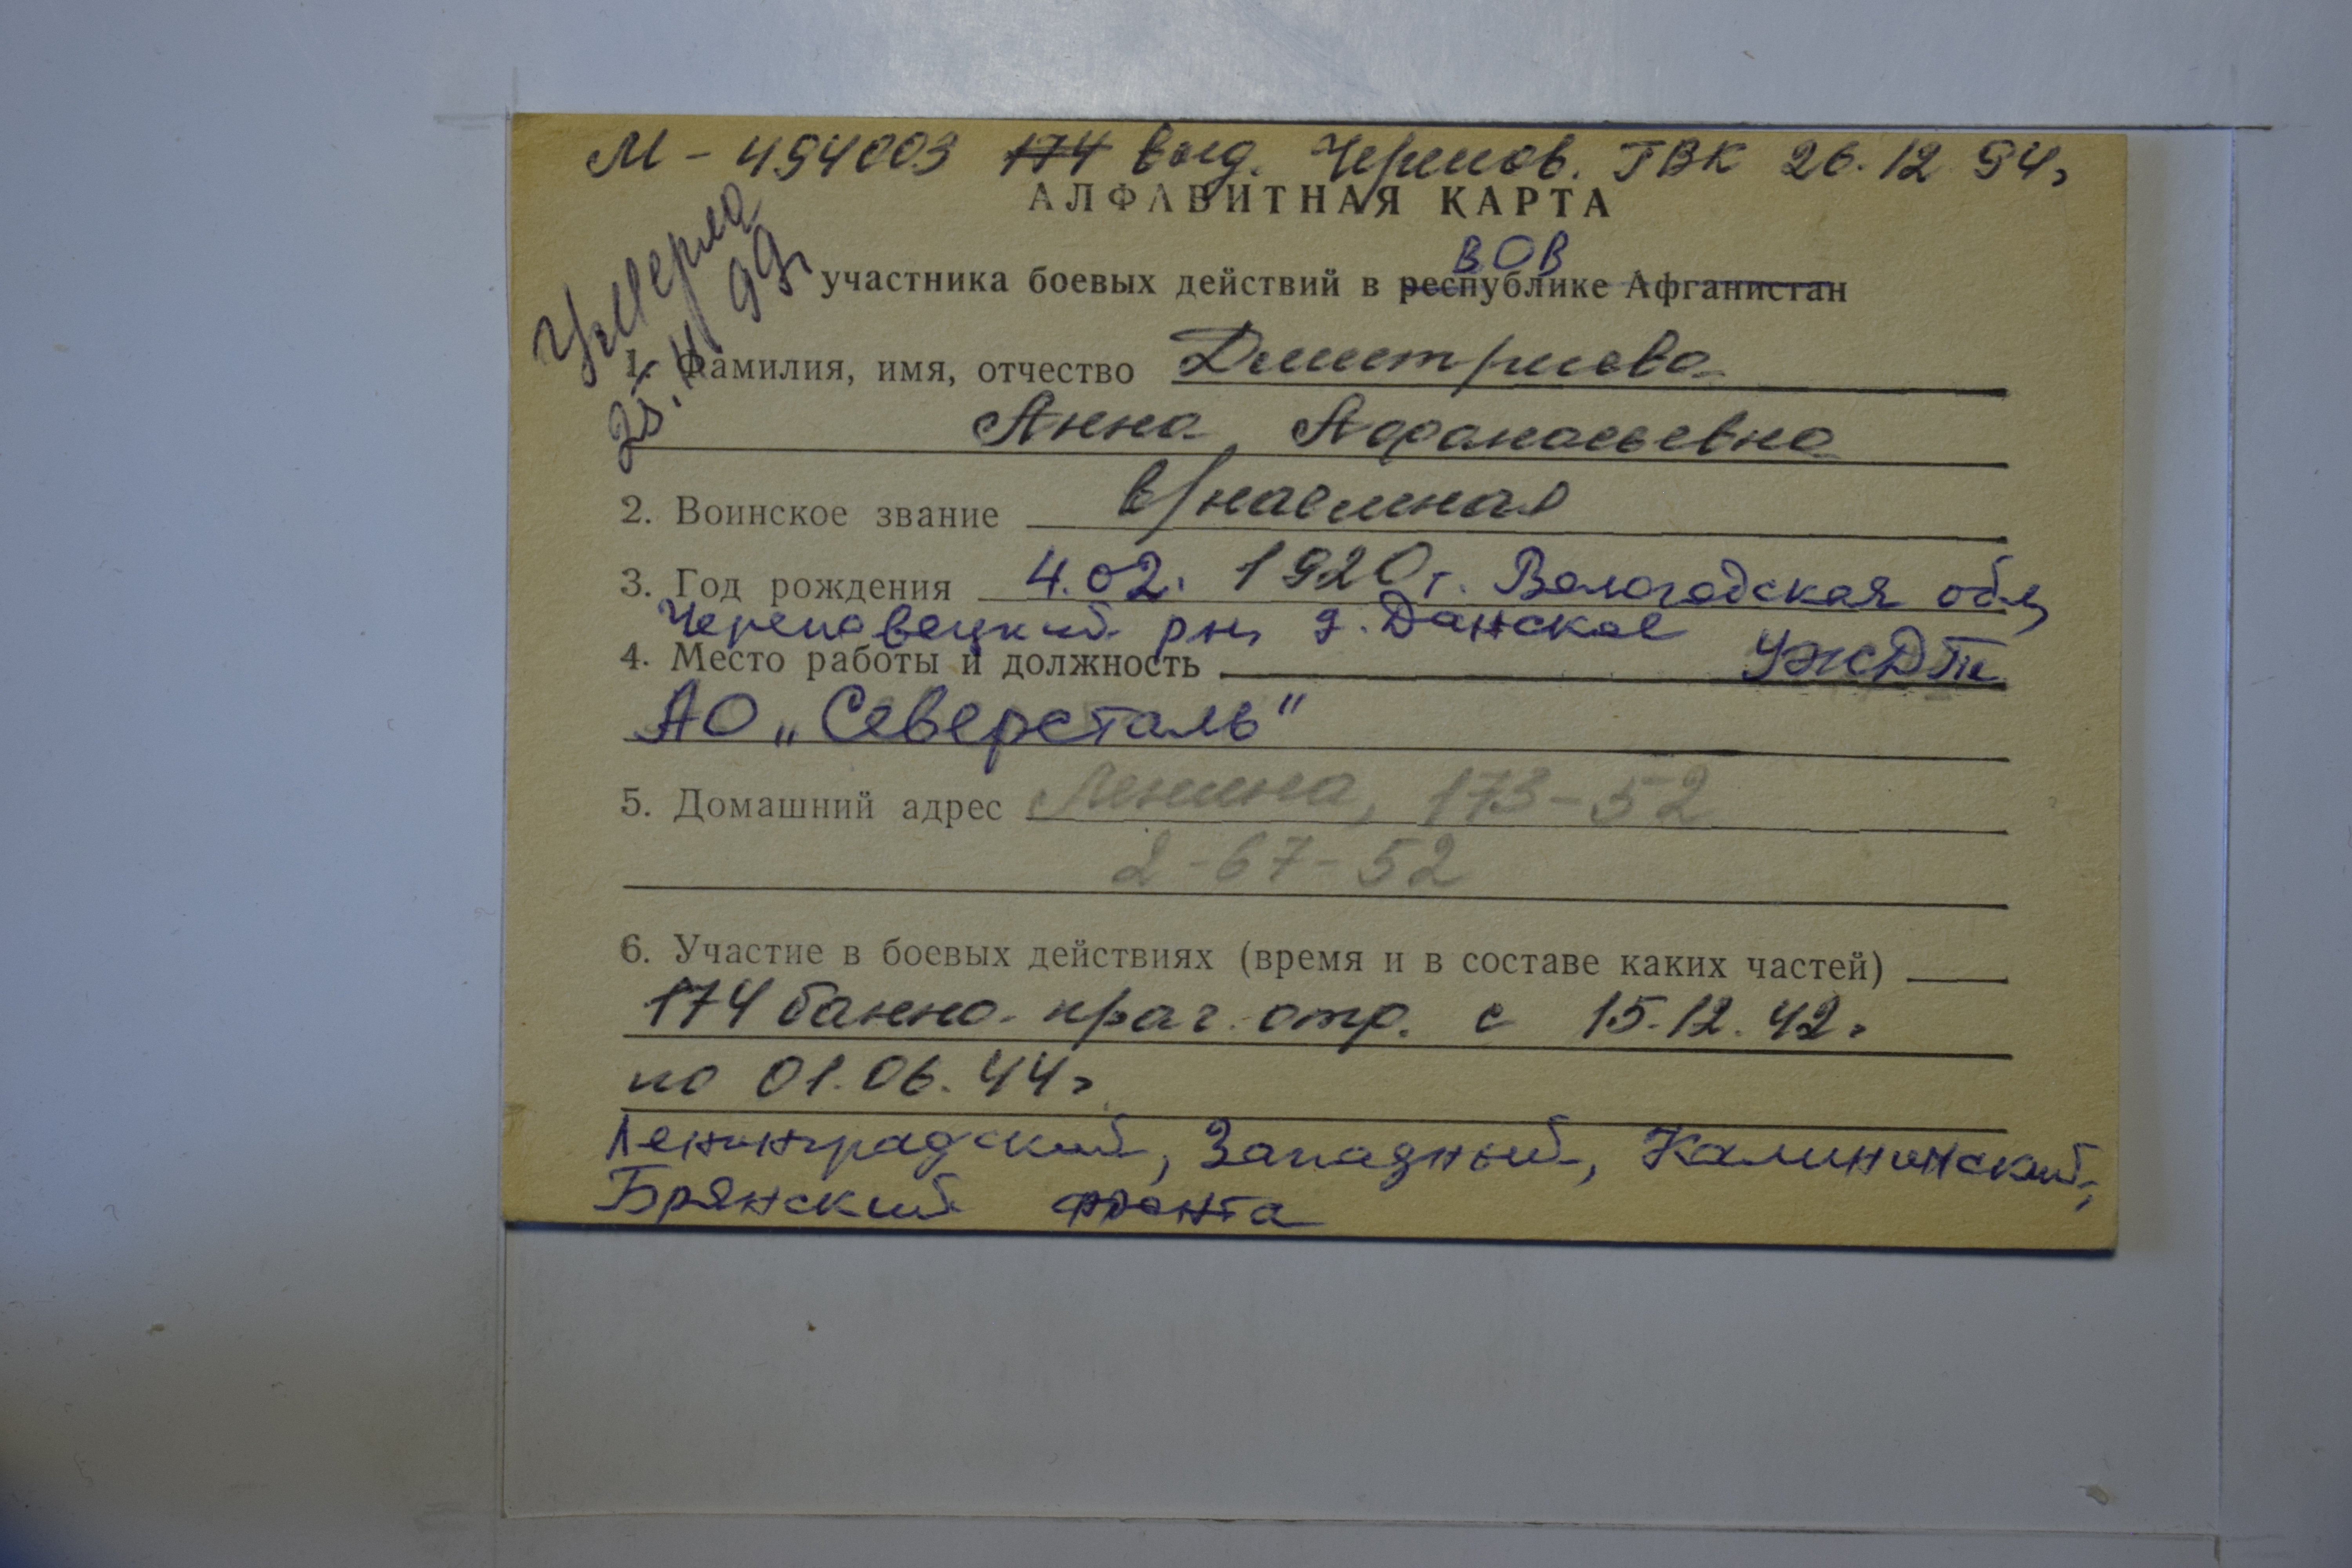 М - 494003 174 выд. Черепов. ГВК 26.12 94г
АЛФАВИТНАЯ КАРТА
Умерла
25.11 99г
ВОВ
участника боевых действий в республике Афганистан
1. Фамилия, имя, отчество Дмитриева
Анна Афанасьевна
2. Воинское звание в/наемная
3. Год рождения 4.02. 1920г. Вологодская обл,
Череповецкий рн, д. Данское
4. Место работы и должность УЖДТ
АО „Северсталь"
5. Домашний адрес Ленина, 173-52
2-67-52
6. Участие в боевых действиях (время и в составе каких частей)
174 банно-прач. отр. с 15.12.42г
по 01.06.44г
Ленинградский, Западный, Калининский,
Брянский фронта